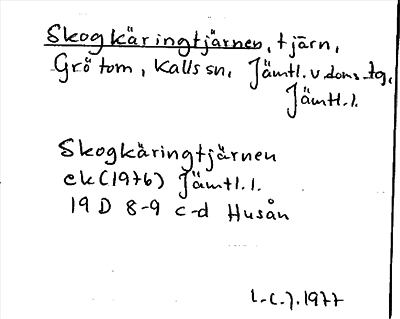 Skogkäringtjärnen, tjärn,
Grötom, Kalls sn, Jämtl. v. doms. tg,
Jämtl. l.
Skogkäringtjärnen
ek (1976) Jämtl. l.
19 D 8-9 c-d Husån
L-C. J. 1977